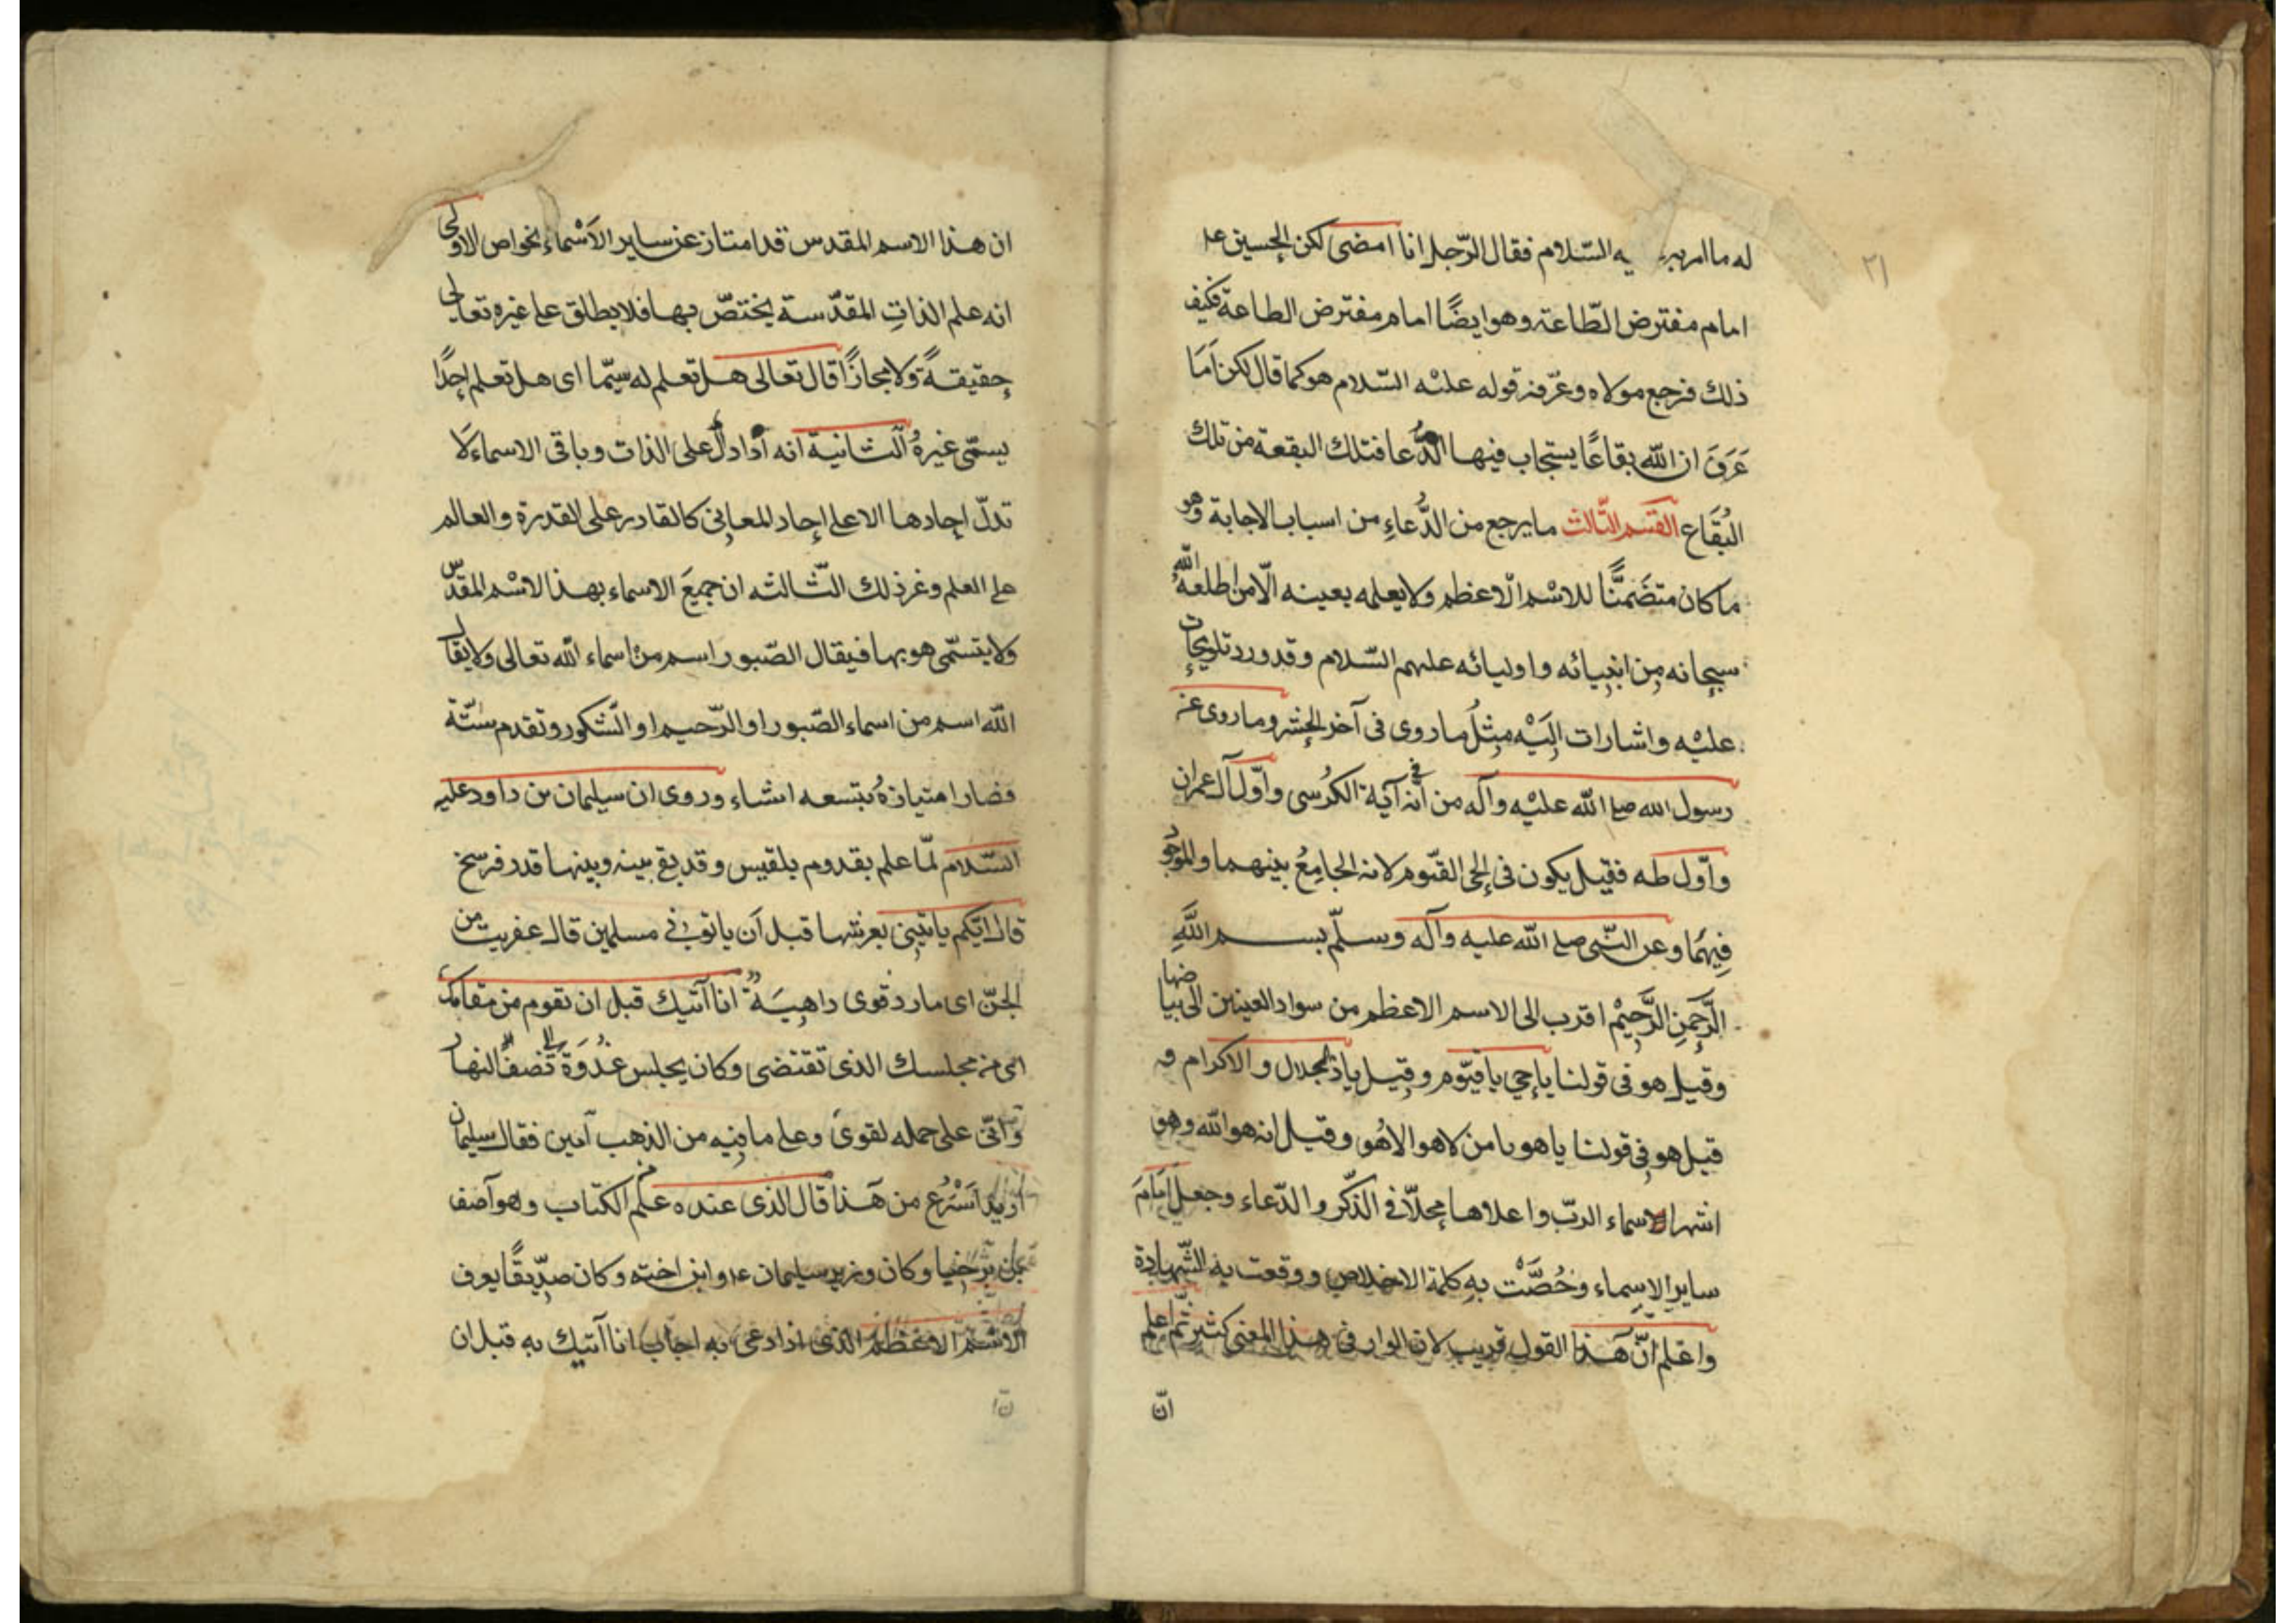 ٢١
له ما امر به يه السّلام فقال الرّجل انا امضى لكن الحسين عل
امام مفترض الطّاعة وهو ايضًا امام مفترض الطاعة فكيف
ذلك فرجع مولاه وعرّفه قوله عليْه السّلام هو كما قال لكن اَمَا
عَرَفَ ان الله بقاعًا يستجاب فيها الدُّعا فتلك البقعة من تلك
البُقَاع القسم الثّالث ما يرجع من الدُّعاءِ من اسباب الاجابة وهو
ما كان متضَمنًّا للاسْم الّاعظم ولا يعلمه بعينه الّا من اطلعهُ الله
سبحانه مِن انبيائه واوليائه عليهم السّلام وقد ورد تلويحات
عليْه واشارات اِلَيْه مِثلُ ما روى فى آخر الحشر وما روى عن
رسول الله صلى الله عليْه وآله من أنه فى آية الكُرسى واوّل آل عمران
واوّل طه فقيل يكون فى الحى القيّوم لانه الجامِعُ بينهما والموجُو
فِيهمَا وعن النّبى صلى الله عليه وآله وسلّم بسم اللهِ
الرَّحمنِ الرَّحيْم اقرب الى الاسم الاعظم من سواد العينين الى بياضها
وقيل هو فى قولنا يا حي يا قيّوم وقيل يا ذا الجلال والاكرام و
قيل هو فى قولنا يا هو يا من لا هو الا هُو وقيل انه هو الله وهو
اشهر الاسماء الربّ واعلاها محلّا فى الذّكر والدّعاء وجعل اَمَامَ
ساير الاسماء وخُصَّتْ بهِ كلمة الاخلاص ووقعت به الشّهادة
واعلم انّ هذا القول قريب لان الوارد فى هذا المعنى كثير ثمّ اعلم
انّ
ان هذا الاسم المقدس قد امتاز عن ساير الاَسْماء بخواص الاولى
انه علم الذاتِ المقدّسة يختصّ بها فلا يطلق على غيره تعالى
حقيقةً ولا مجازًا قال تعالى هل تعلم له سيّما اى هل تعلم احدًا
يسمّى غيرهُ الثانية انه دالّ على الذات وباقى الاسماء لَا
تدلّ احادها الا على احاد المعانى كالقادر على القدرة والعالم
على العلم وغر ذلك الثّالثه ان جميعَ الاسماء بهذا الاسْم المقدّس
ولا يتسّمى هو بها فيقال الصّبور اسم من اسماء الله تعالى ولا يقال
الله اسم من اسماء الصّبور او الرّحيم او الشّكور وتقدم ستّة
فصار امتيازهُ بتسعه اشياء وروى ان سليمان بن داود عليه
السّلام لمّا علم بقدوم بلقيس وقد بقى بينه وبينها قدر فرسخ
قال ايّكم ياتينى بعرشها قبل اَن ياتونى مسلمين قال عفريت من
الجنّ اى مارد قوى داهِيَة انا آتيك قبل ان تقوم من مقامك
اى من مجلسك الذى تقتضى وكان يجلس غدْوَة الى نصف النهار
وانّى على حمله لقوى وعلى ما فيه من الذهب آمين فقال سليمان
اريد اَسْرُع من هَذا قال الذى عنده علم من الكتاب وهو آصف
بن برخيا وكان وزير سليمان ع وابن اخته وكان صدّيقًا يعرف
الاسْم الاعظم الذى اذا دعى به اجاب انا آتيك به قبل ان